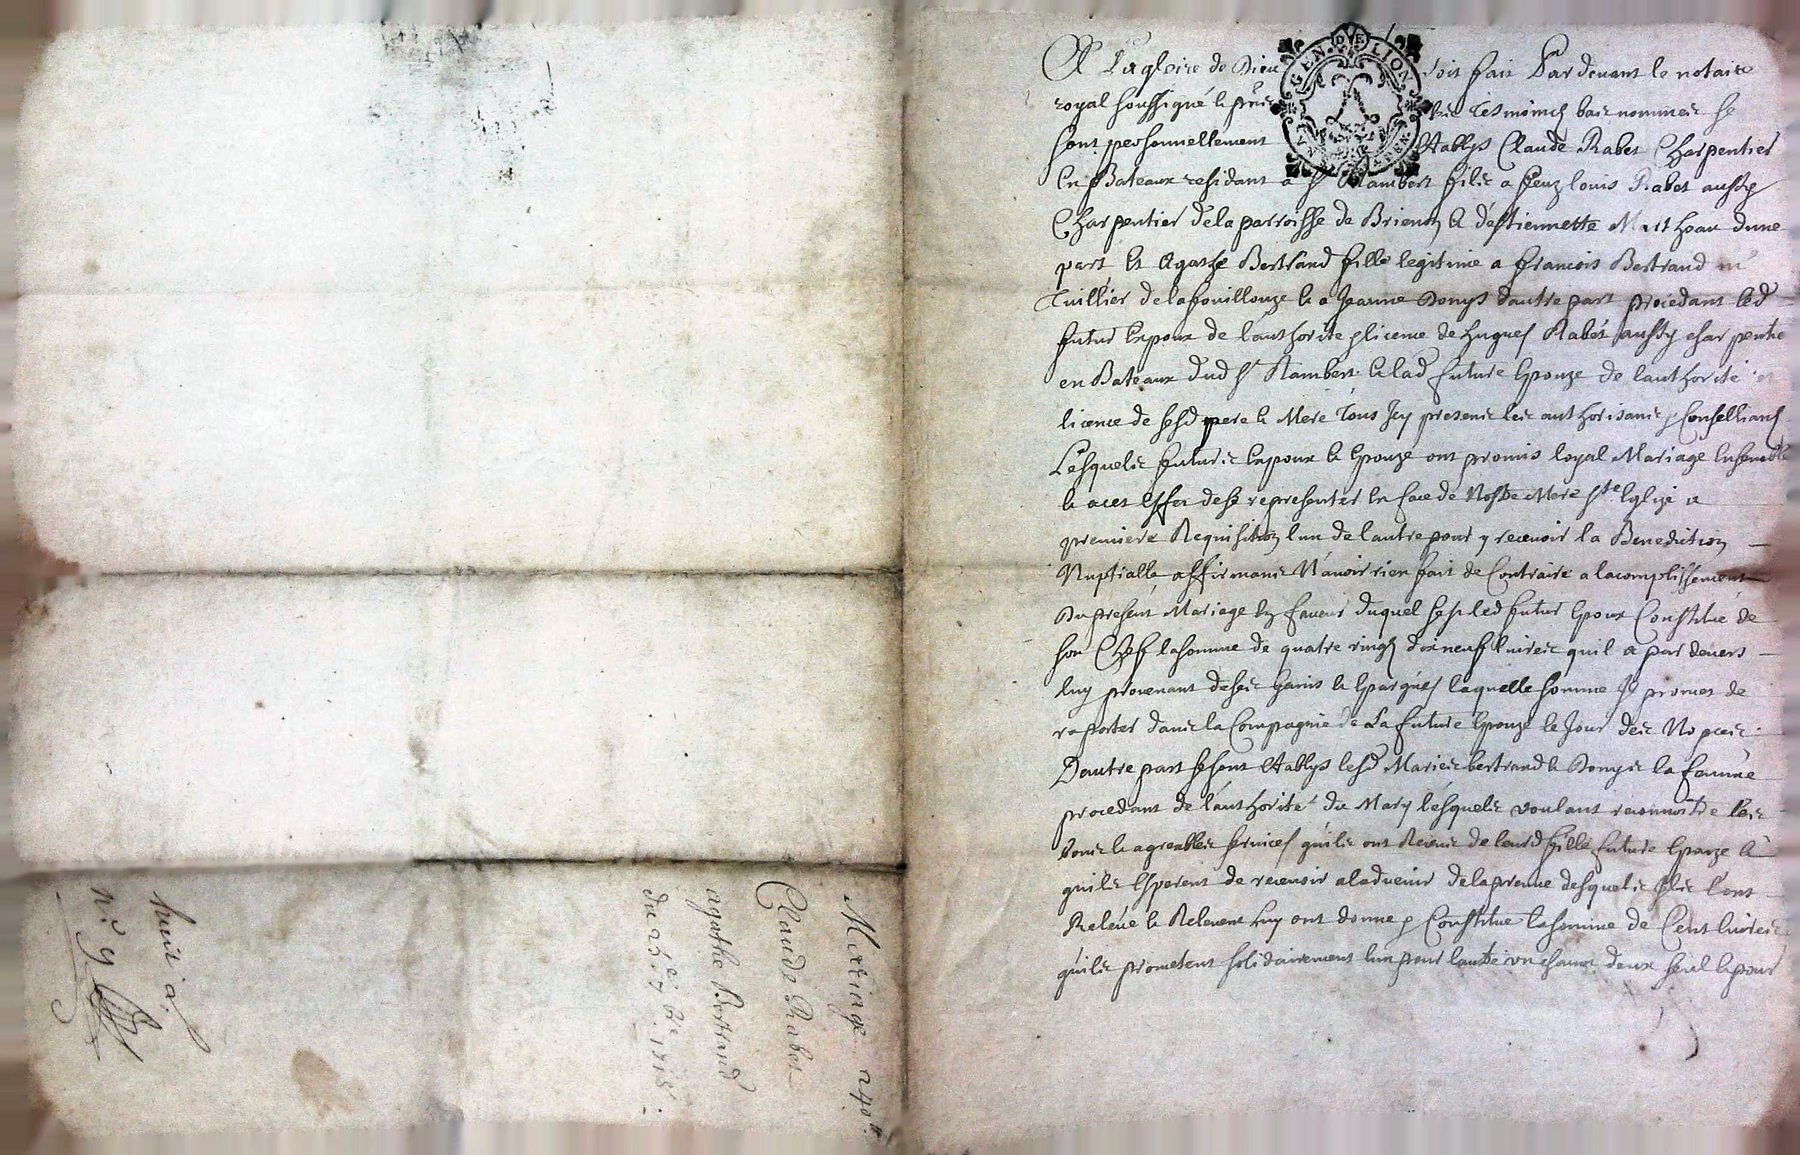 A La gloire de Dieu soit fait Pardevant le notaire
royal soussigné &
sont personnellement Etablys Claude Rabet Charpentier
En Bateaux residant a St Rambert filz a feuz louis Rabet aussy
Charpentier de la parroisse de Brienon & destiennette Mathoau dune
part Et Agathe Bertrand fille legitime a francois Bertrand
Tuillier de lafouillouze & a Jeanne Donys dautre part procedant led
futur Expoux de lauthorite & licence de hugues Rabet aussy charpentie
en Bateaux dud St Rambert & lad future Epouze de lauthorite et
licence de sesd pere & Mere Tous Icy presents les authorisants & Conselliants
Lesquels futurs Expoux & Epouze ont promis loyal Mariage Ensemble
& a cet Effet de se representer En face de Nostre Mere Ste Eglize a
premiere Requisition lun de lautre pour y recevoir la Benediction
Nuptialle affirmants Navoir rien fait de Contraire a lacomplissement
Du present Mariage En faveur duquel sest led futur Epoux Constitué de
son Chef la somme de quatre vingt dix neuf livres quil a par devers
luy provenant de ses gains & Epargnes laquelle somme Il promet de
raporter dans la Compagnie de La future Epouze le Jour des Nopces
Dautre part se sont Etablys lesd Mariés bertrand & Donys la femme
procedant de lauthorité du Mary lesquels voulant reconnoistre les
bons & agreables services quils ont Receus de leurd fille future Epouze &
quils Esperent de recevoir a ladvenir de la preuve desquels Ils lont
Relevé & Relevent luy ont donné & Constitué la somme de Cent livres
quils prometent solidairement lun pour lautre un chacun deux seul & pour
Mariage
Claude Rabet
agathe Bertrand
du 25e 7bre 1715